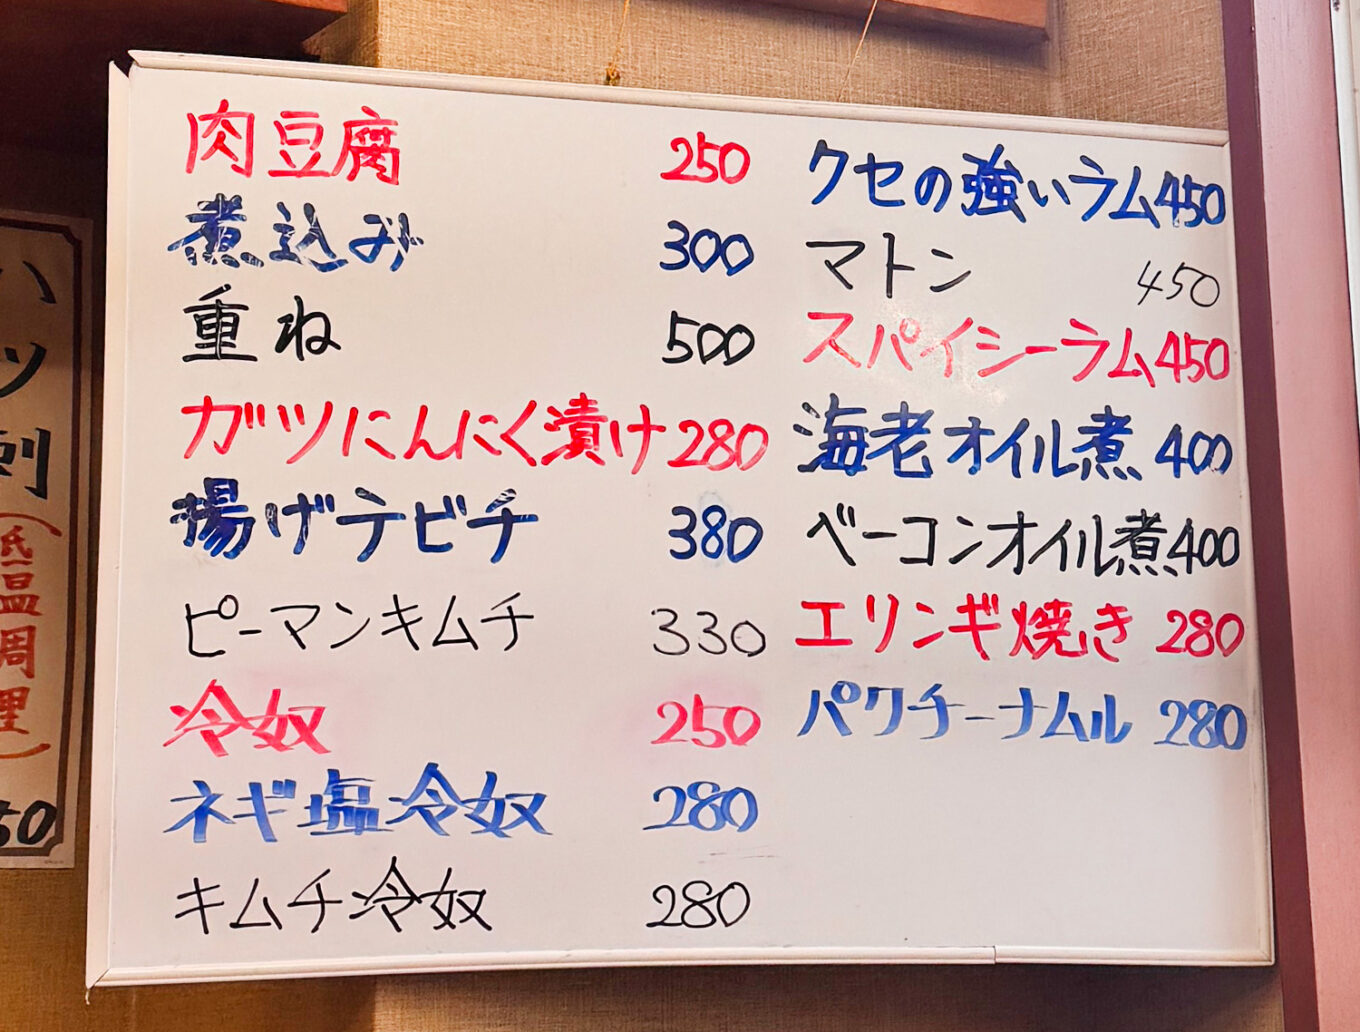 肉豆腐 250
煮込み 300
重ね 500
ガツにんにく漬け 280
揚げテビチ 380
ピーマンキムチ 330
冷奴 250
ネギ塩冷奴 280
キムチ冷奴 280
クセの強いラム 450
マトン 450
スパイシーラム 450
海老オイル煮 400
ベーコンオイル煮 400
エリンギ焼き 280
パクチーナムル 280
ハツ刺
(低温調理)
50